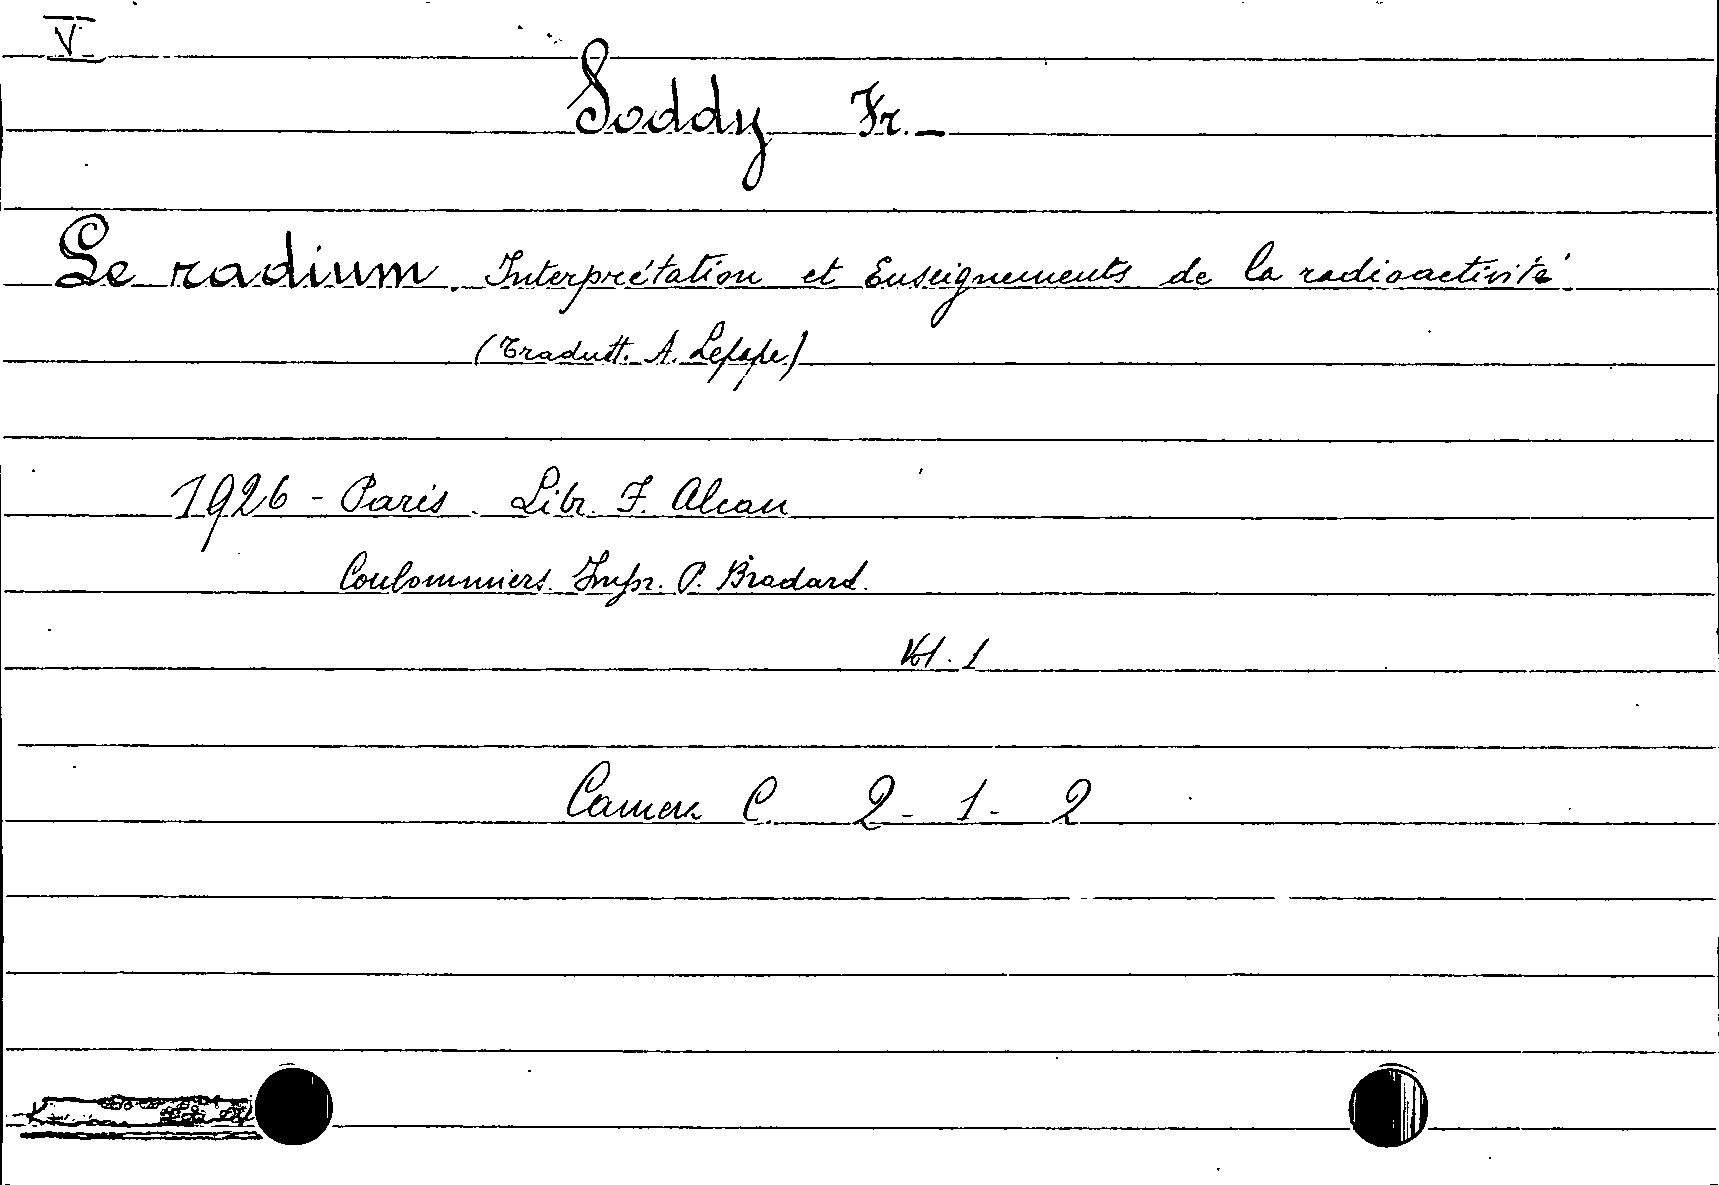 V
Soddy Fr. –
Le radium. Interprétation et Enseignements de la radioactivité.
(Tradutt. A. Lepape)
1926 - Paris. Libr. F. Alcan
Coulommiers. Impr. P. Brodard.
Vol. 1
Camera C. 2 - 1 - 2